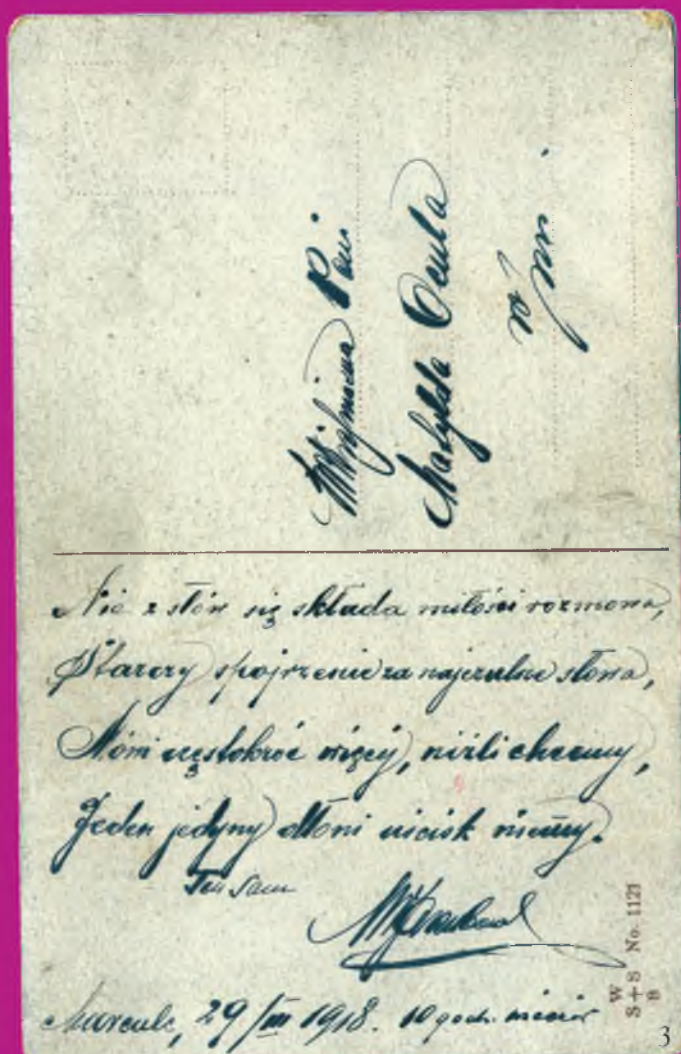 Pani
Matylda Cenla
w
Nie z słów się składa miłości rozmowa,
Starczy spojrzenie za najczulsze słowa,
Mówi częstokroć więcej, niźli chcemy,
Jeden jedyny dłoni uścisk niemy.
Ten sam
Marcule, 29/III 1918. 10 godz. wieczór
W
S+S No. 1121
B
3